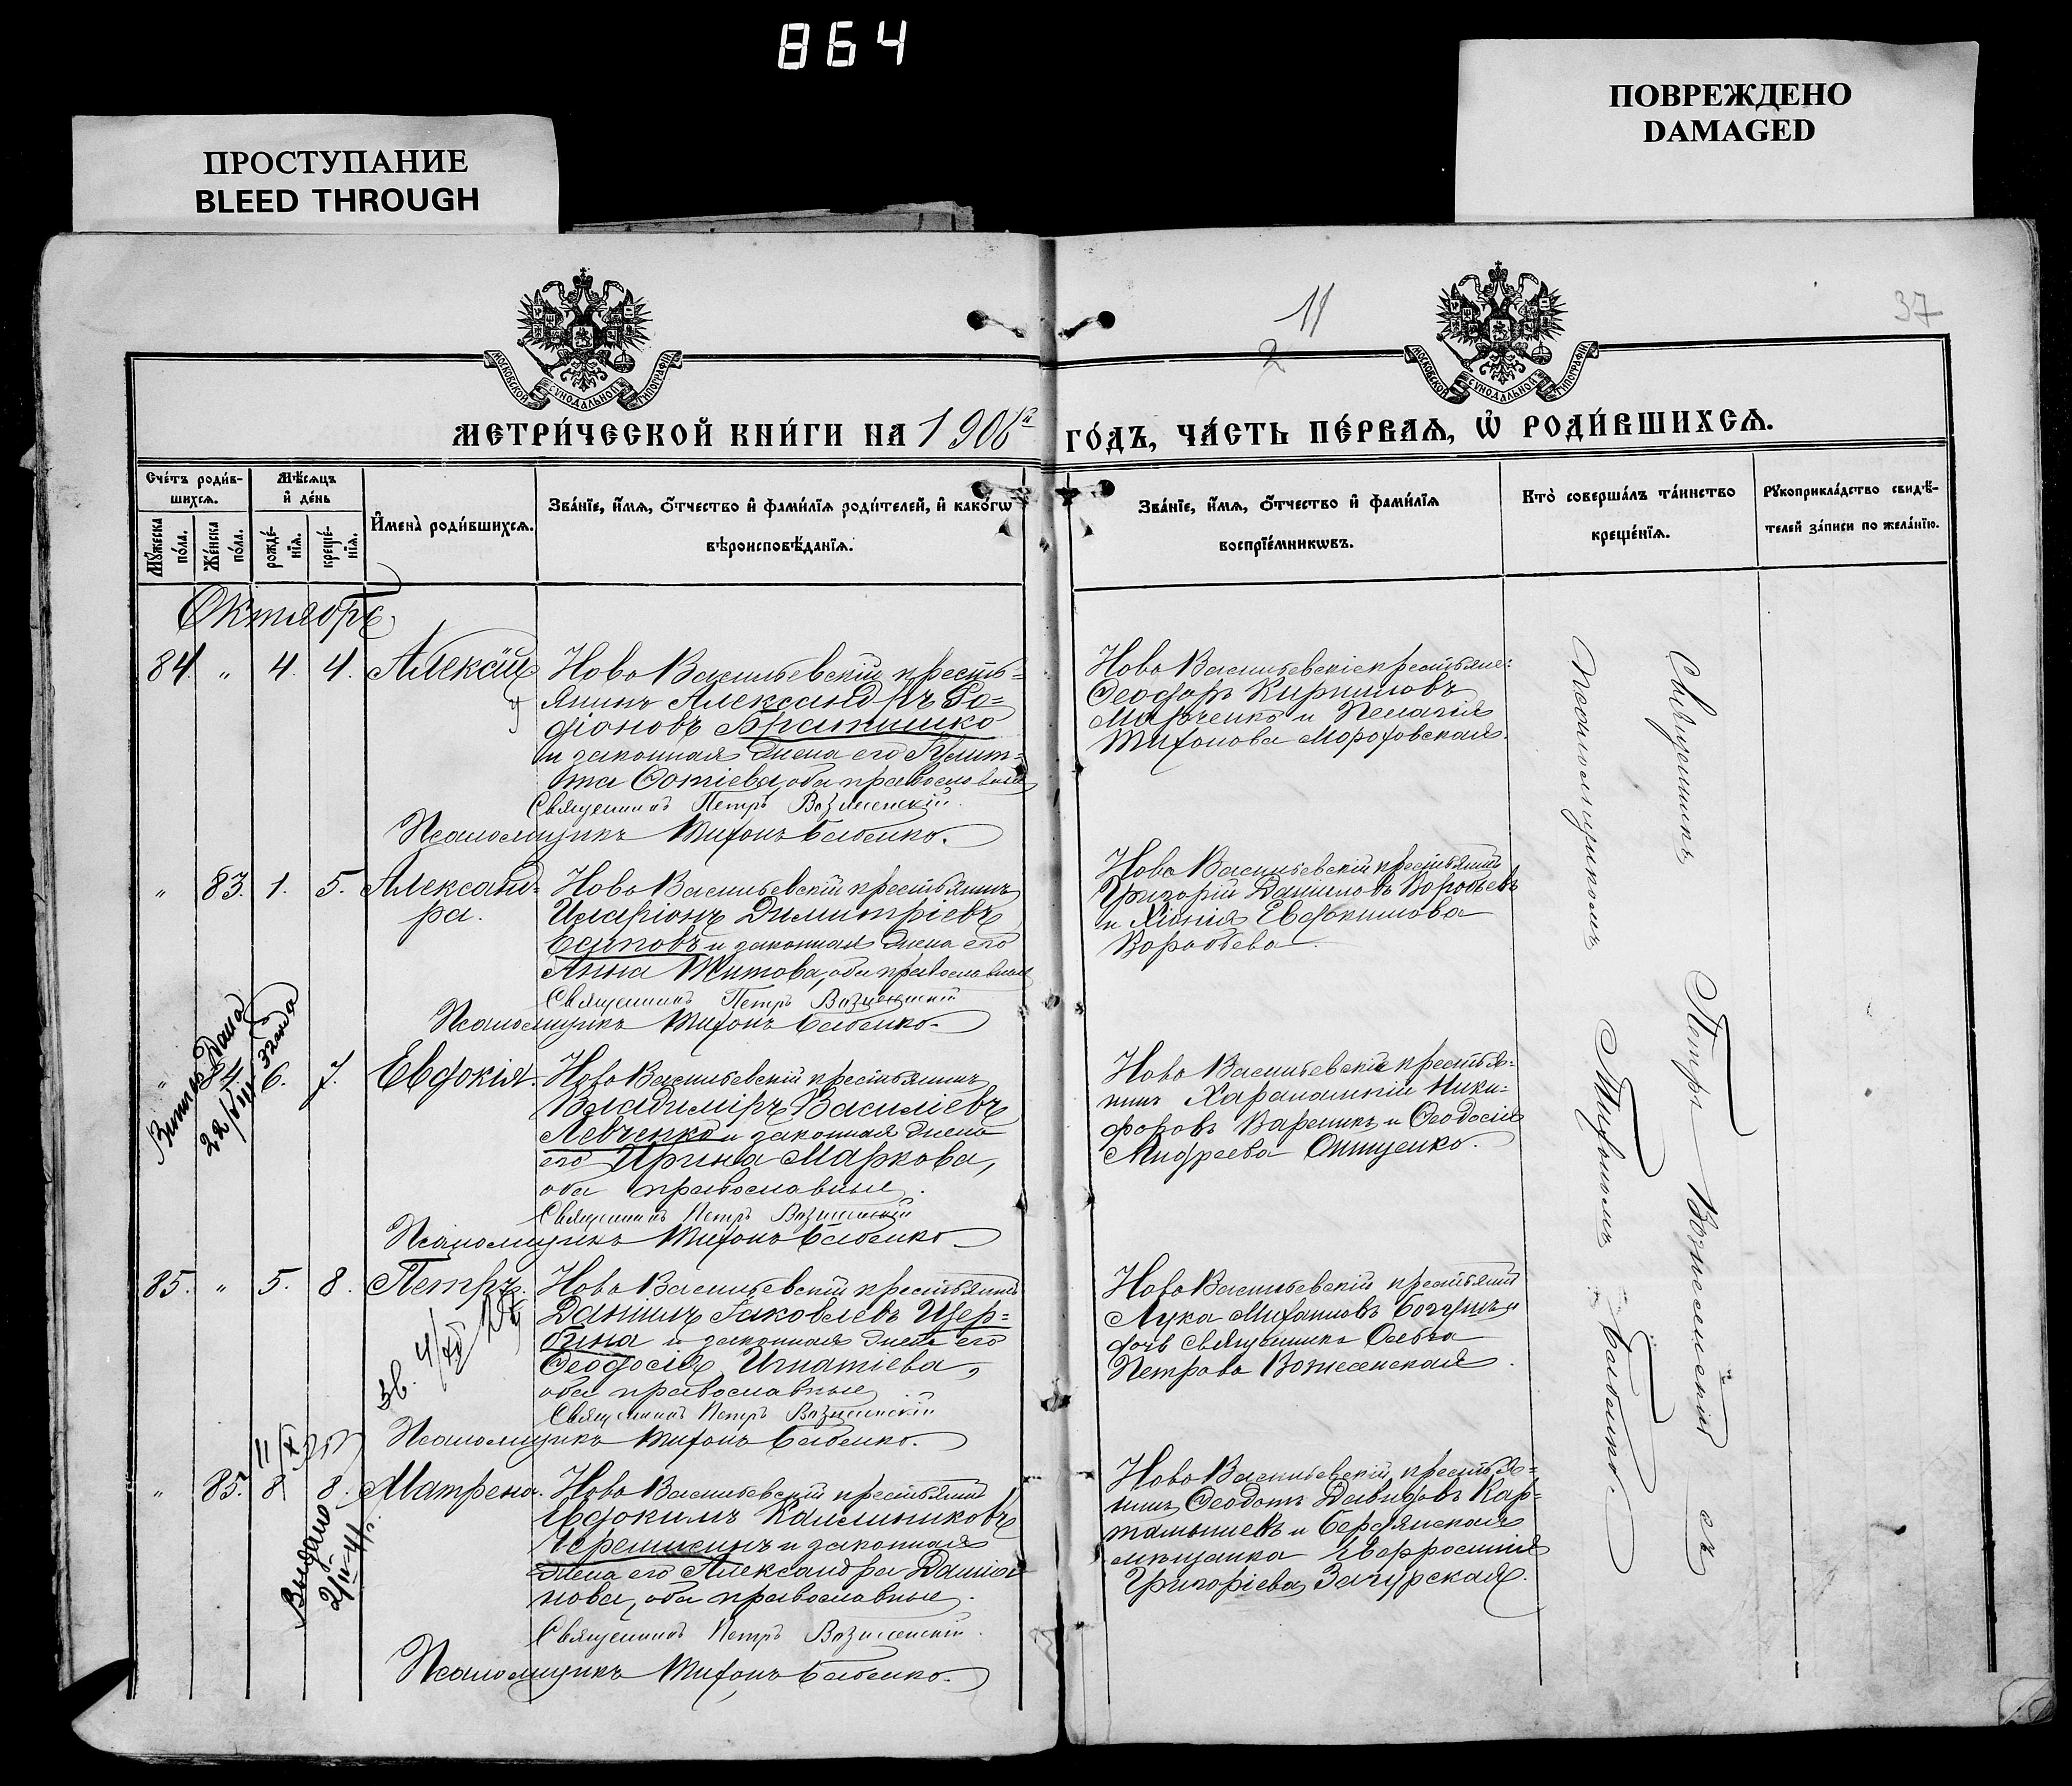 864
ПРОСТУПАНИЕ
BLEED THROUGH
ПОВРЕЖДЕНО
DAMAGED
11
2
37
МОСКОВСКОЙ СУНОДАЛЬНОЙ ТИПОГРАФІИ
МОСКОВСКОЙ СУНОДАЛЬНОЙ ТИПОГРАФІИ
МЕТРИ́ЧЕСКОЙ КНИ́ГИ НА 1906й ГО́ДЪ, ЧА́СТЬ ПЕ́РВАѦ, Ѡ҆ РОДИ́ВШИХСѦ.
Сче́тъ роди́в-
шихсѧ.
Мѣ́сѧцъ
и҆ де́нь
Мꙋ́жеска
по́ла.
Же́нска
по́ла.
рожде́-
нїѧ.
креще́-
нїѧ.
И҆мена̀ роди́вшихсѧ.
Зва́нїе, и҆́мѧ, ѻ҆́тчество и҆ фами́лїѧ роди́телей, и҆ како́гѡ
вѣроисповѣ́данїѧ.
Зва́нїе, и҆́мѧ, ѻ҆́тчество и҆ фами́лїѧ
воспрїе́мникѡвъ.
Кто̀ соверша́лъ та́инство
креще́нїѧ.
Рꙋкоприкла́дство свидѣ́-
телей за́писи по жела́нїю.
Октябрь
84. " 4. 4. Алексій
Ново Васильевскій кресть=
янинъ Александръ Ро=
діоновъ Братишко
и законная жена его Улит=
та Фотіева, оба православные
Священникъ Петръ Вознесенскій.
Псаломщикъ Тихонъ Бабенко.
Ново Васильевскіе крестьяне:
Феодоръ Кирилловъ
Марченко и Пелагія
Тихонова Мороховская.
" 83. 1. 5. Александ=
ра.
Ново Васильевскій крестьянинъ
Иларіонъ Димитріевъ
Есиповъ и законная жена его
Анна Титова, оба православные
Священникъ Петръ Вознесенскій
Псаломщикъ Тихонъ Бабенко.
Ново Васильевскій крестьянинъ
Григорій Даниловъ Воробьевъ
и Хіонія Евдокимова
Воробьева.
" 84 6. 7. Евдокія.
22/VIII
Ново Васильевскій крестьянинъ
Владиміръ Василіевъ
Левченко и законная жена
его Ирина Маркова,
оба православные.
Священникъ Петръ Вознесенскій
Псаломщикъ Тихонъ Бабенко.
Ново Васильевскій крестья=
нинъ Харалампій Ники=
форовъ Вареникъ и Феодосія
Андреева Онищенко.
85. " 5. 8. Петръ.
Ново Васильевскій крестьянинъ
Даніилъ Іаковлевъ Щер=
бина и законная жена его
Феодосія Игнатіева,
оба православные
Священникъ Петръ Вознесенскій
Псаломщикъ Тихонъ Бабенко.
Ново Васильевскій крестьянинъ
Лука Михаиловъ и
дочь священника Ольга
Петрова Вознесенская.
" 85. 8. 8. Матрена.
Выдано
Ново Васильевскій крестьянинъ
Евдокимъ Каллиниковъ
Черемисинъ и законная
жена его Александра Даниі
нова, оба православные.
Священникъ Петръ Вознесенскій.
Псаломщикъ Тихонъ Бабенко.
Ново Васильевскій крестья=
нинъ Феодотъ Давидовъ Кар=
тамышевъ и Бердянская
мѣщанка Евфросинія
Григоріева Загурская.
Священникъ Петръ Вознесенскій съ
псаломщикомъ Тихономъ Бабенко.